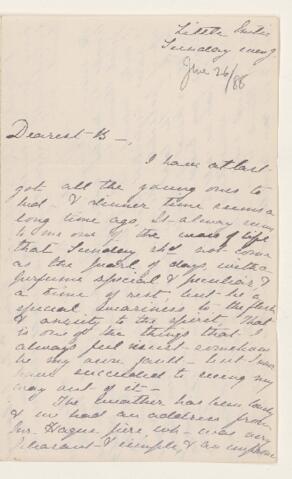 Little Subs
Sunday evng
June 26/88
Dearest B—,
I have at last
got all the young ones to
bed & dinner time seems a
long time ago. It always seems
to me one of the woes of life
that Sunday shd. not come
as the pearl of days, with a
perfume special & peculiar, &
a time of rest, but be a
special weariness to the flesh
& anxiety to the spirit. That
is one of the things that I
always feel must somehow
be my own fault — but I never
have succeeded to seeing my
way out of it —
The weather has been lovely
& we had an address from
Mr. Hague here wh. was very
pleasant & simple, & an